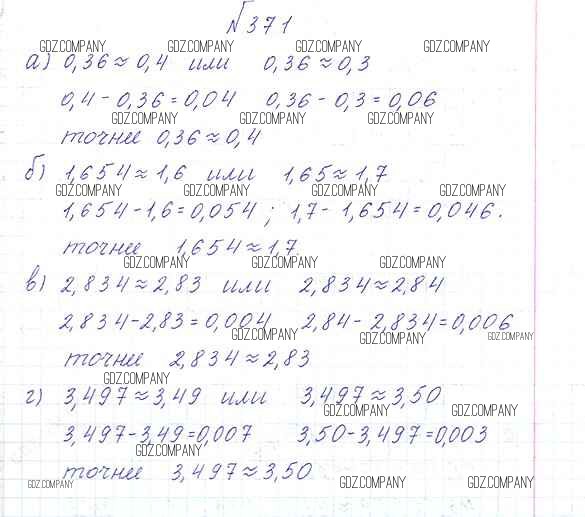 №371
GDZ.COMPANY GDZ.COMPANY GDZ.COMPANY GDZ.COMPANY
а) 0,36≈0,4 или 0,36≈0,3
0,4-0,36=0,04 0,36-0,3=0,06
GDZ.COMPANY GDZ.COMPANY GDZ.COMPANY
точнее 0,36≈0,4
б) 1,654≈1,6 или 1,65≈1,7
GDZ.COMPANY GDZ.COMPANY GDZ.COMPANY GDZ.COMPANY
1,654-1,6=0,054; 1,7-1,654=0,046.
точнее 1,654≈1,7
GDZ.COMPANY GDZ.COMPANY GDZ.COMPANY
в) 2,834≈2,83 или 2,834≈2,84
2,834-2,83=0,004 2,84-2,834=0,006
GDZ.COMPANY GDZ.COMPANY GDZ.COMPANY
точнее 2,834≈2,83
GDZ.COMPANY
г) 3,497≈3,49 или 3,497≈3,50
GDZ.COMPANY GDZ.COMPANY
3,497-3,49=0,007 3,50-3,497=0,003
GDZ.COMPANY
точнее 3,497≈3,50
GDZ.COMPANY GDZ.COMPANY GDZ.COMPANY